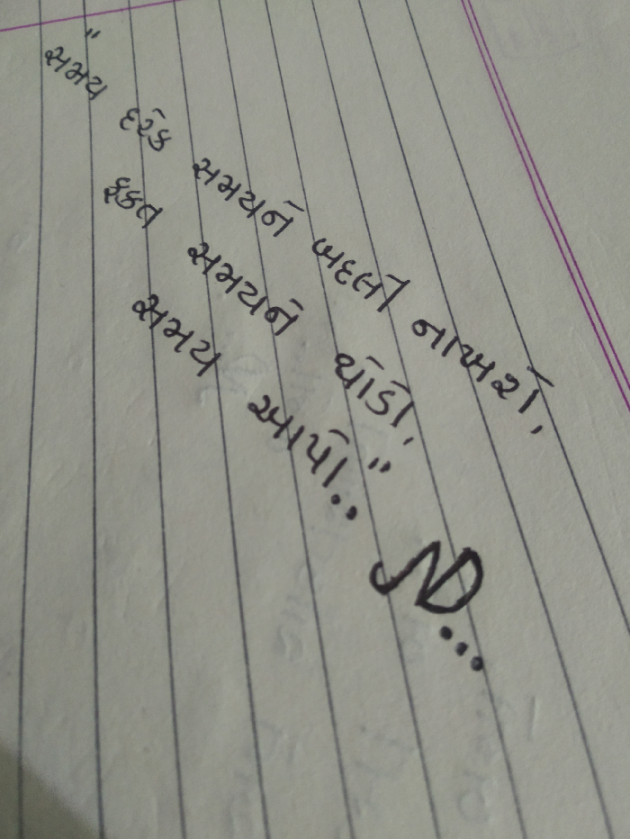 " સમય દરેક સમયને બદલી નાખશે,
ફકત સમયને થોડો,
સમય આપો.. "
ND...